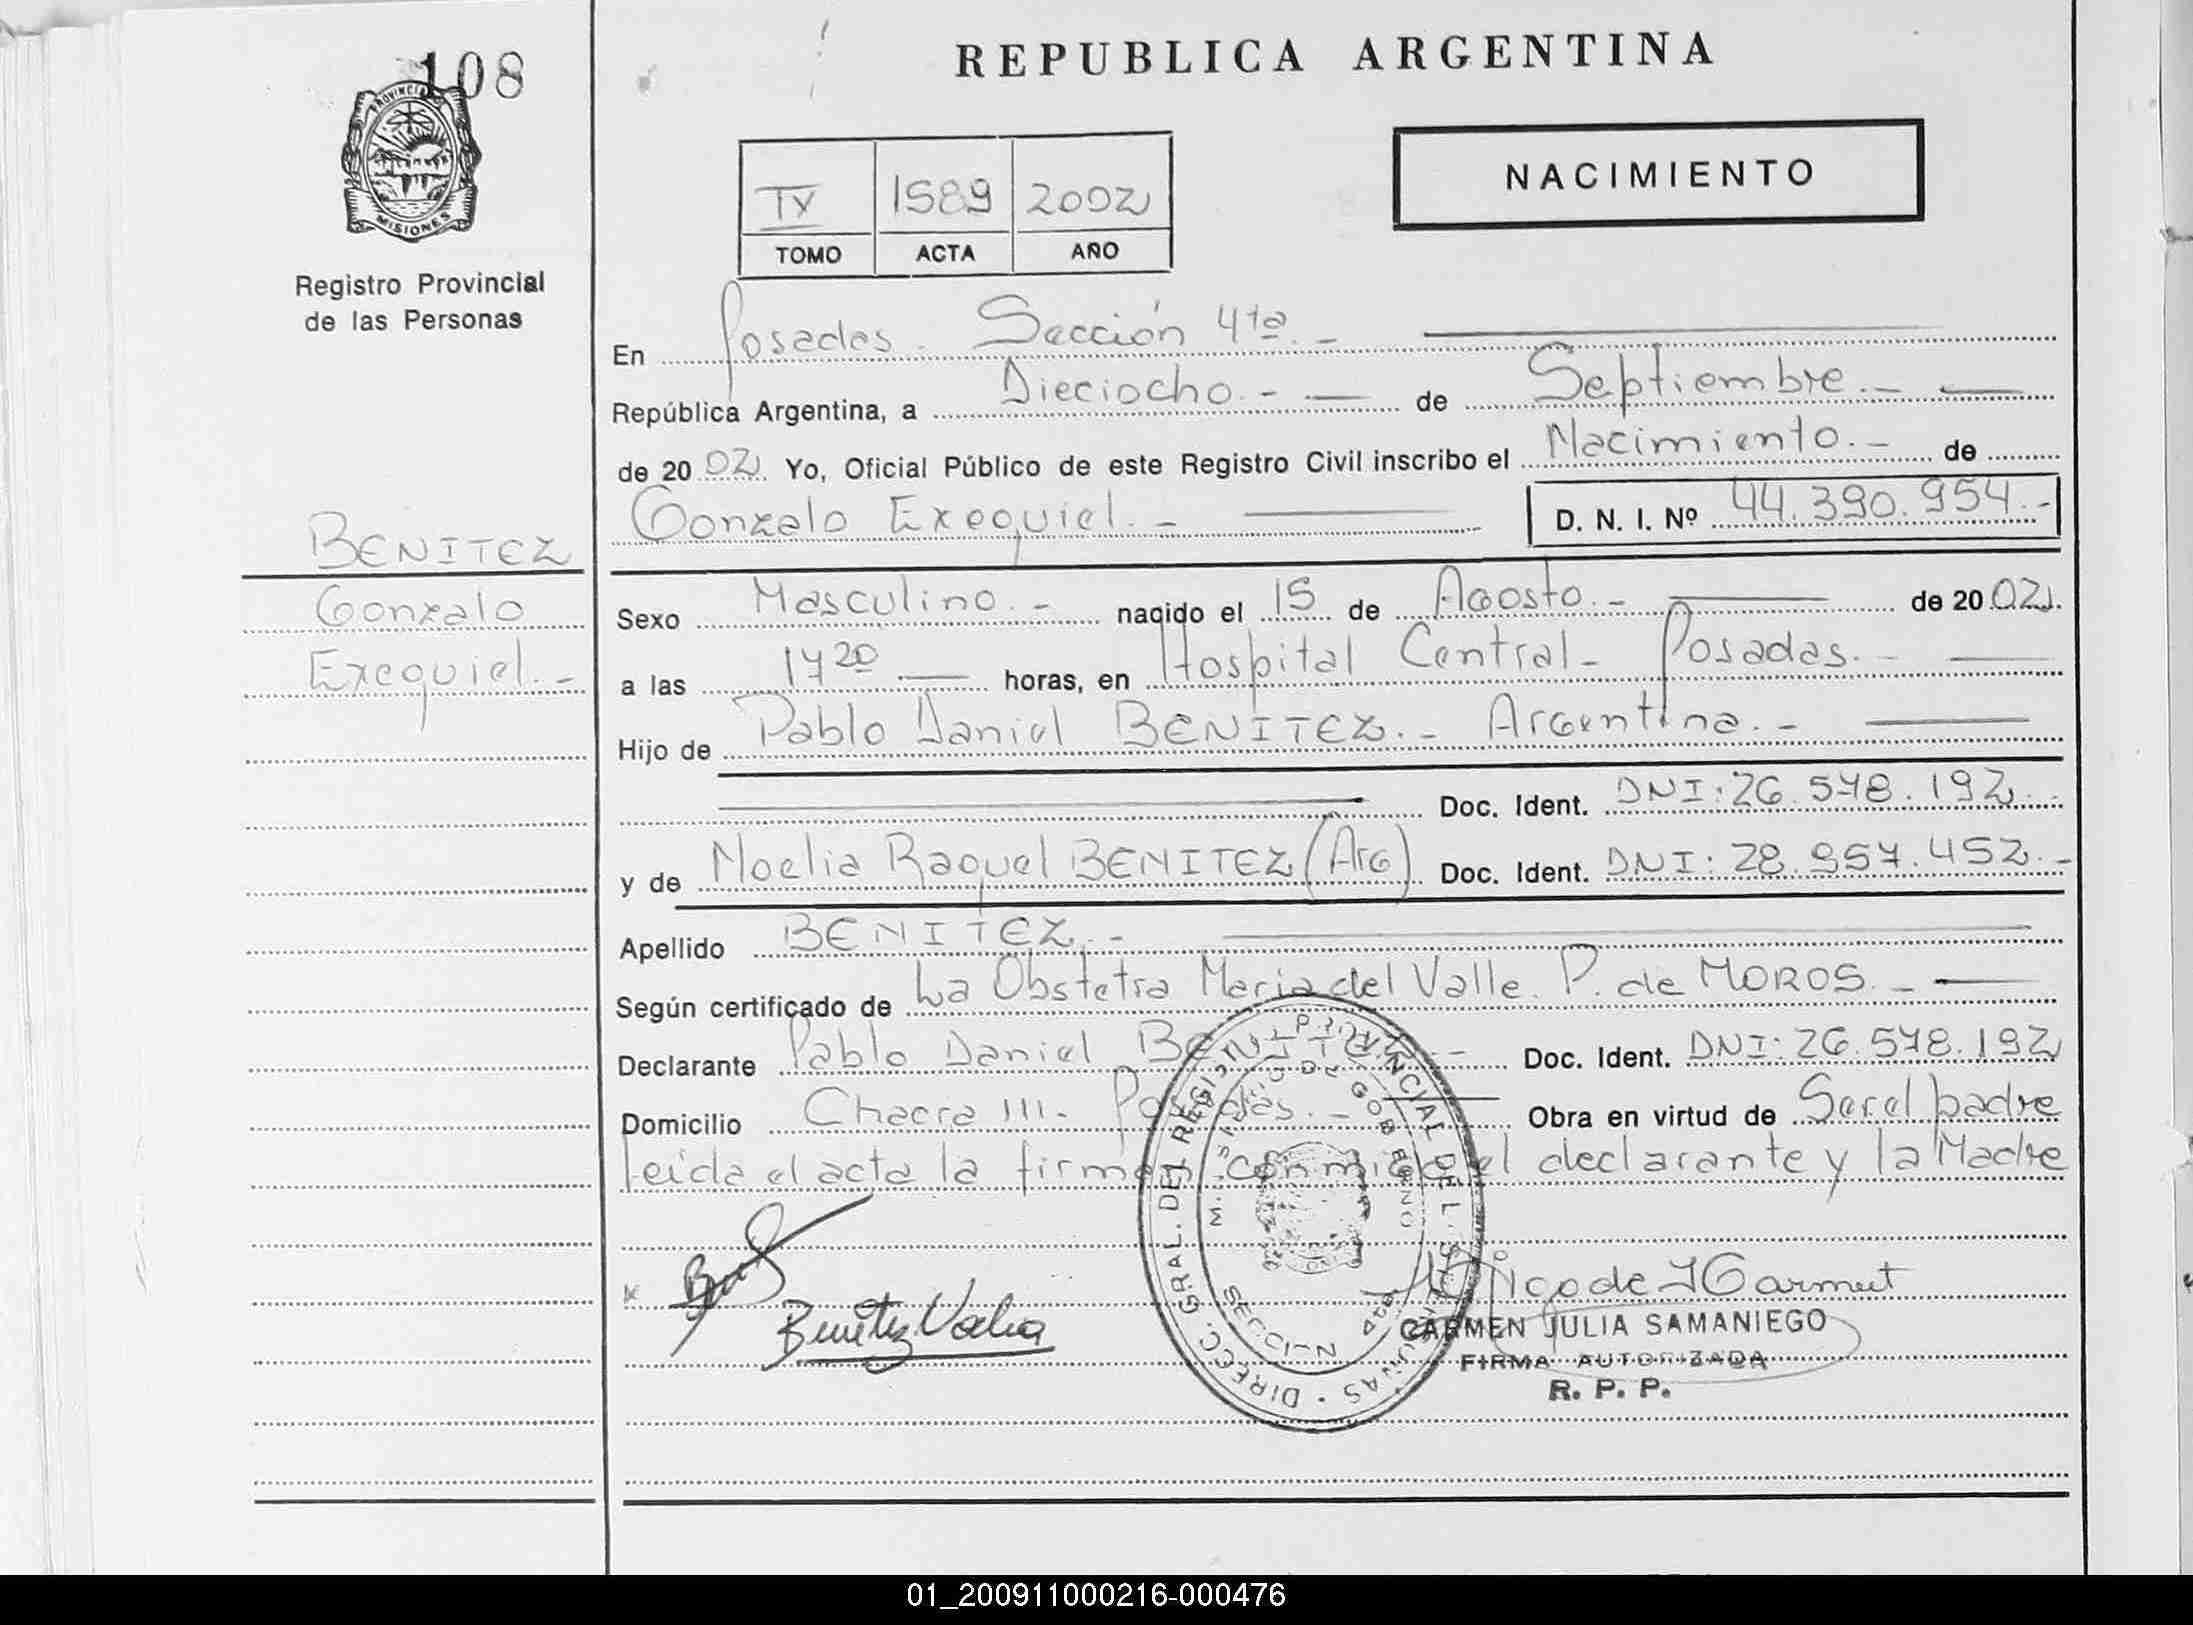 108
REPUBLICA ARGENTINA
NACIMIENTO
IV 1589 2002
TOMO ACTA AÑO
PROVINCIA DE MISIONES
Registro Provincial
de las Personas
BENITEZ
Gonzalo
Exequiel.-
En Posadas. Sección 4ta.-
República Argentina, a Dieciocho.- de Septiembre.-
de 2002 Yo, Oficial Público de este Registro Civil inscribo el Nacimiento.- de
Gonzalo Exequiel.- D. N. I. Nº 44.390.954.-
Sexo Masculino.- nacido el 15 de Agosto.- de 2002.
a las 1720 horas, en Hospital Central- Posadas.-
Hijo de Pablo Daniel BENITEZ.- Argentina.-
Doc. Ident. DNI: 26.578.192.-
y de Noelia Raquel BENITEZ (Arg) Doc. Ident. DNI: 28.957.452.-
Apellido BENITEZ.-
Según certificado de La Obstetra Maria del Valle P. de MOROS.-
Declarante Pablo Daniel BENITEZ.- Doc. Ident. DNI: 26.578.192
Domicilio Chacra 111- Posadas.- Obra en virtud de Ser el padre
Leida el acta la firman conmigo el declarante y la Madre
Benitez Noelia
CARMEN JULIA SAMANIEGO
FIRMA AUTORIZADA
R. P. P.
DIRECC. GRAL. DEL REGIST. PROVINCIAL DE L
SECCION 4ta
01_200911000216-000476